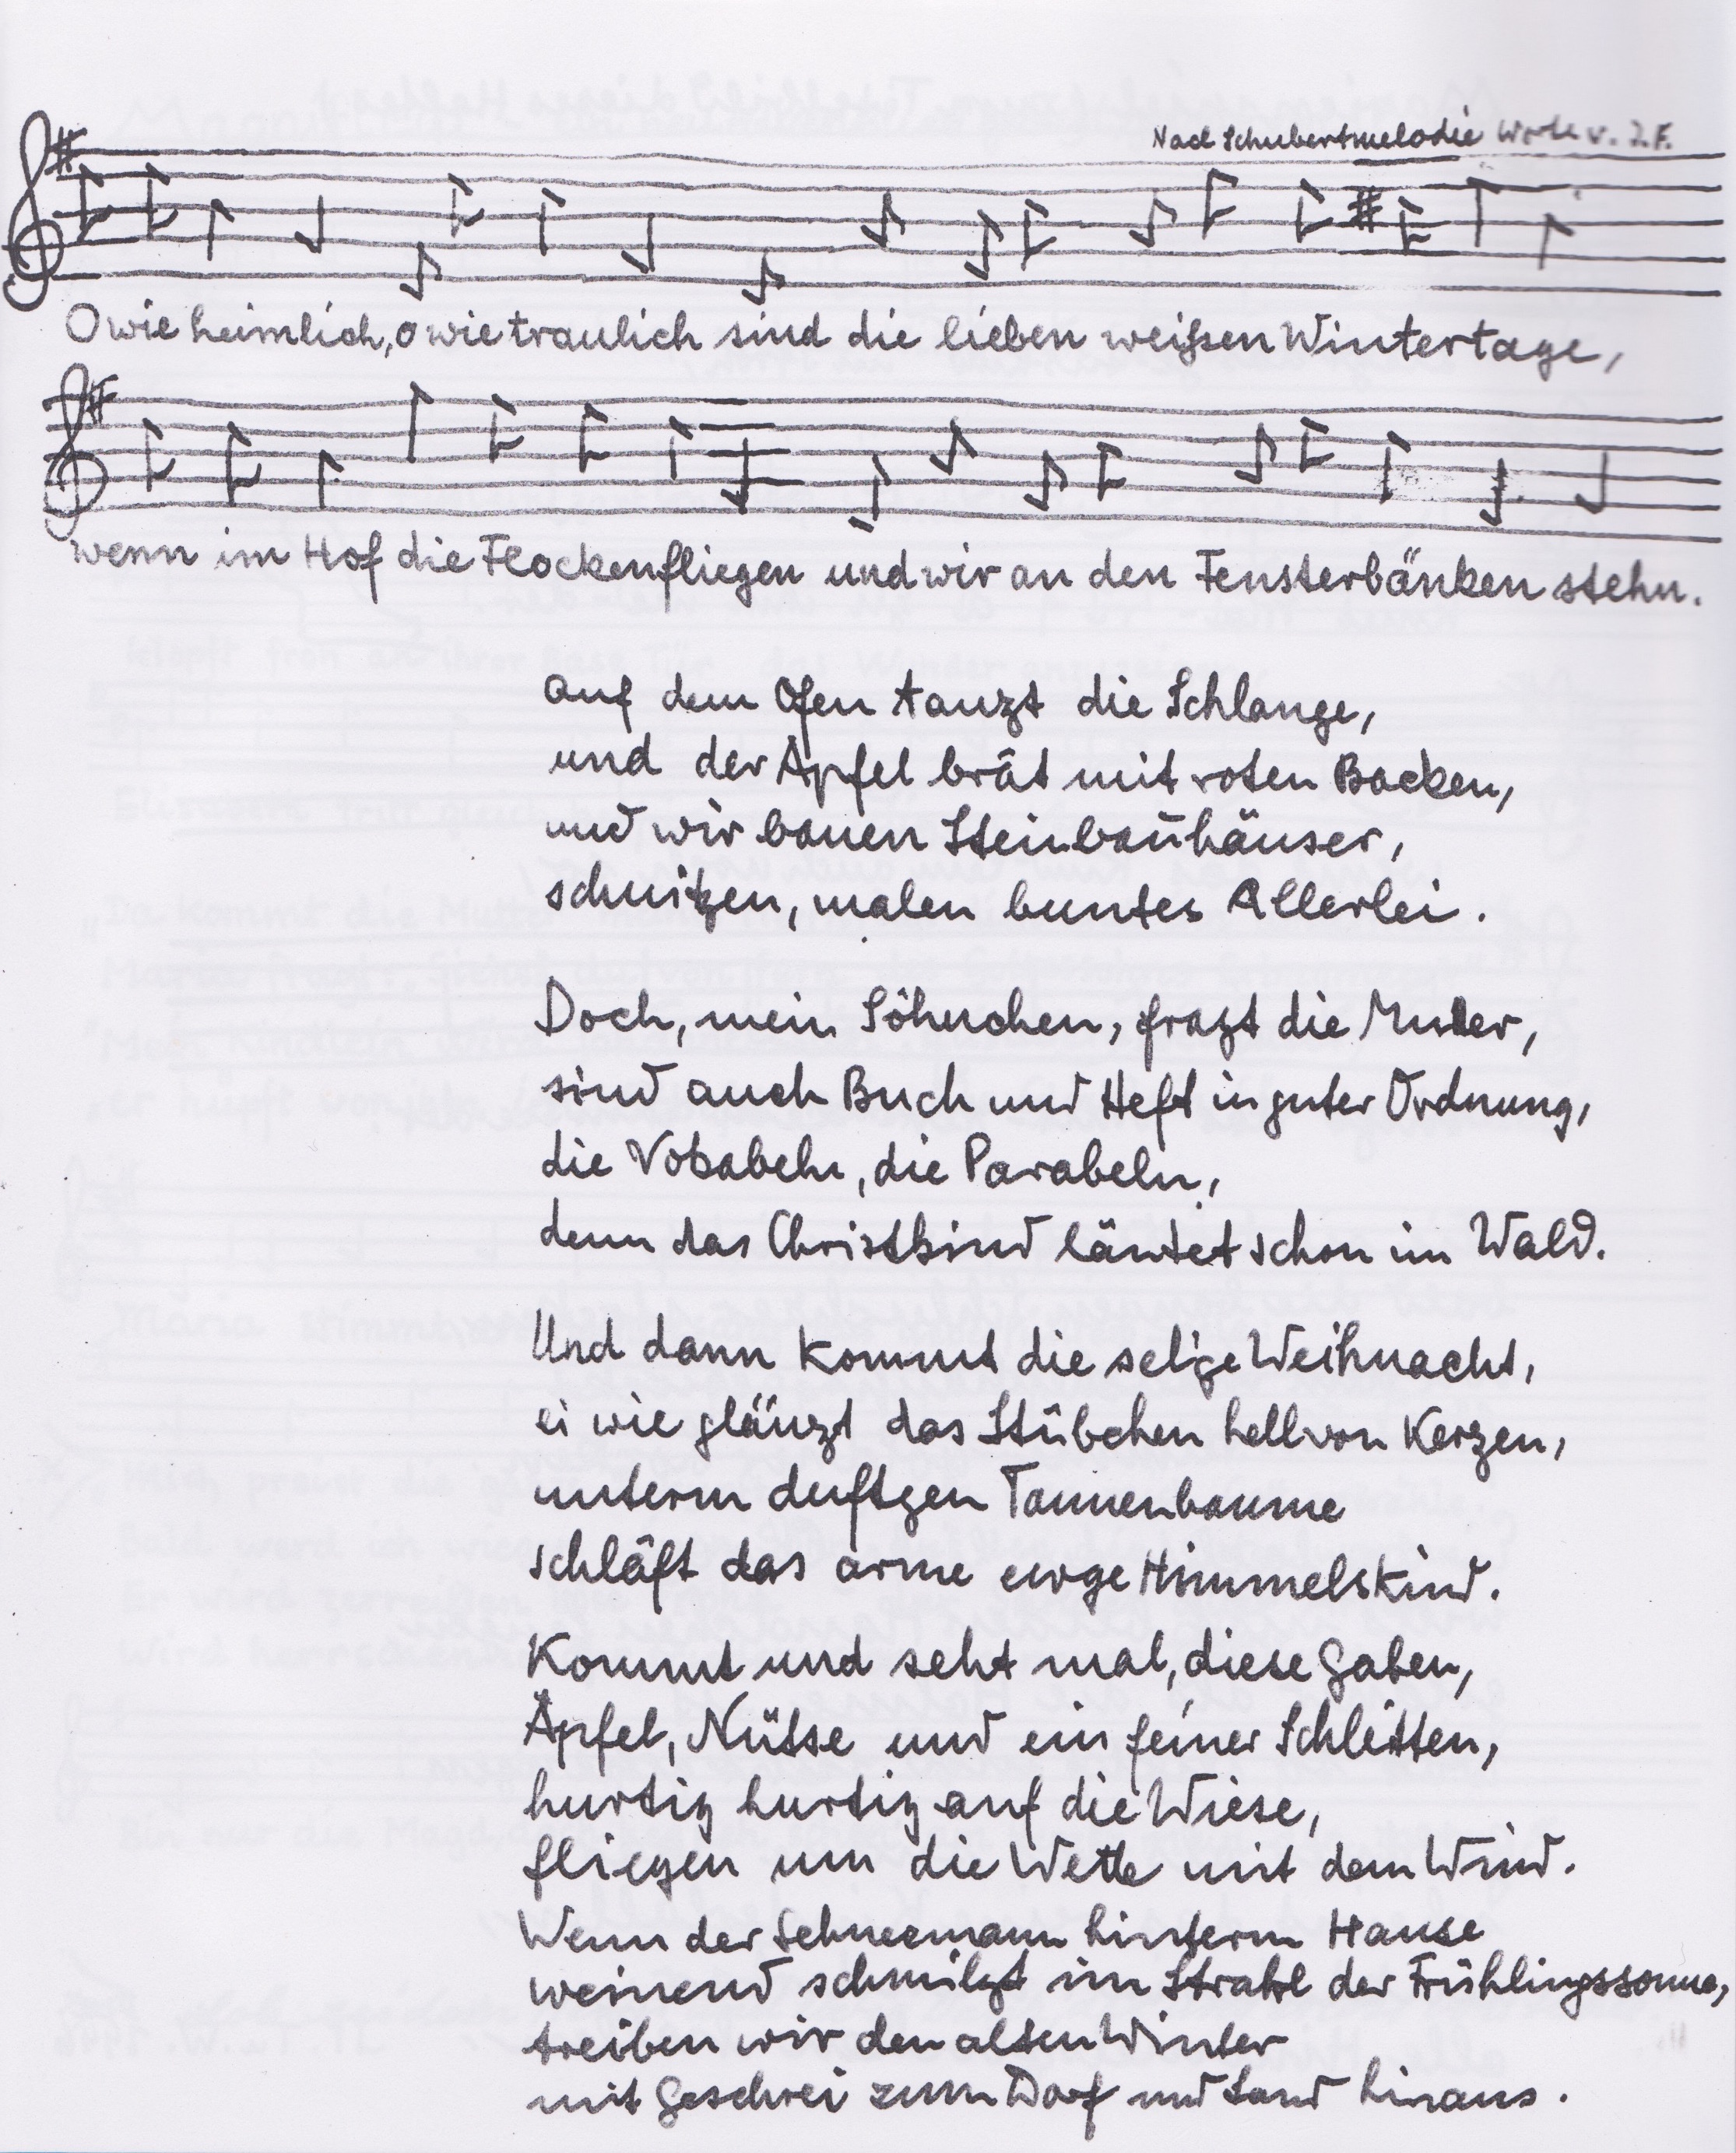 Nach Schubertmelodie Worte v. J.F.
O wie heimlich, o wie traulich sind die lieben weißen Wintertage,
wenn im Hof die Flocken fliegen und wir an den Fensterbänken stehn.
Auf dem Ofen tanzt die Schlange,
und der Apfel brät mit roten Backen,
und wir bauen Steinbauhäuser,
schnitzen, malen buntes Allerlei.
Doch, mein Söhnchen, fragt die Mutter,
sind auch Buch und Heft in guter Ordnung,
die Vokabeln, die Parabeln,
denn das Christkind läutet schon im Wald.
Und dann kommt die selige Weihnacht,
ei wie glänzt das Stübchen hell von Kerzen,
unterm duftgen Tannenbaume
schläft das arme ewge Himmelskind.
Kommt und seht mal, diese Gaben,
Äpfel, Nüsse und ein feiner Schlitten,
hurtig hurtig auf die Wiese,
fliegen um die Wette mit dem Wind.
Wenn der Schneemann hinterm Hause
weinend schmilzt im Strahl der Frühlingssonne,
treiben wir den alten Winter
mit Geschrei zum Dorf und Land hinaus.